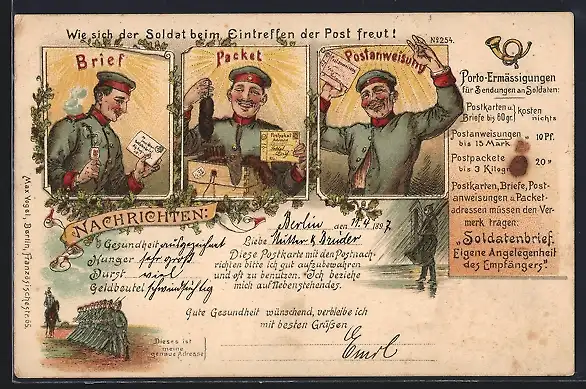 Wie sich der Soldat beim Eintreffen der Post freut!
No 254.
Brief
Packet
Postanweisung
Porto-Ermässigungen
für Sendungen an Soldaten:
Postkarten u.
Briefe bis 60 gr.
kosten
nichts
Postanweisungen
bis 15 Mark
" 10 Pf.
Postpackete
bis 3 Kilogr.
20 "
Postkarten, Briefe, Post-
anweisungen u. Packet-
adressen müssen den Ver-
merk tragen:
„Soldatenbrief.
Eigene Angelegenheit
des Empfängers".
NACHRICHTEN:
Gesundheit ausgezeichnet
Hunger sehr groß
Durst viel
Geldbeutel schwindsüchtig
Berlin den 11.4. 1897
Liebe Mutter & Brüder
Diese Postkarte mit den Postnach-
richten bitte ich gut aufzubewahren
und oft zu benutzen. "Ich beziehe
mich auf Nebenstehendes.
Gute Gesundheit wünschend, verbleibe ich
mit besten Grüssen
Emil
Dieses ist
meine
genaue Adresse
Max Vogel, Berlin,